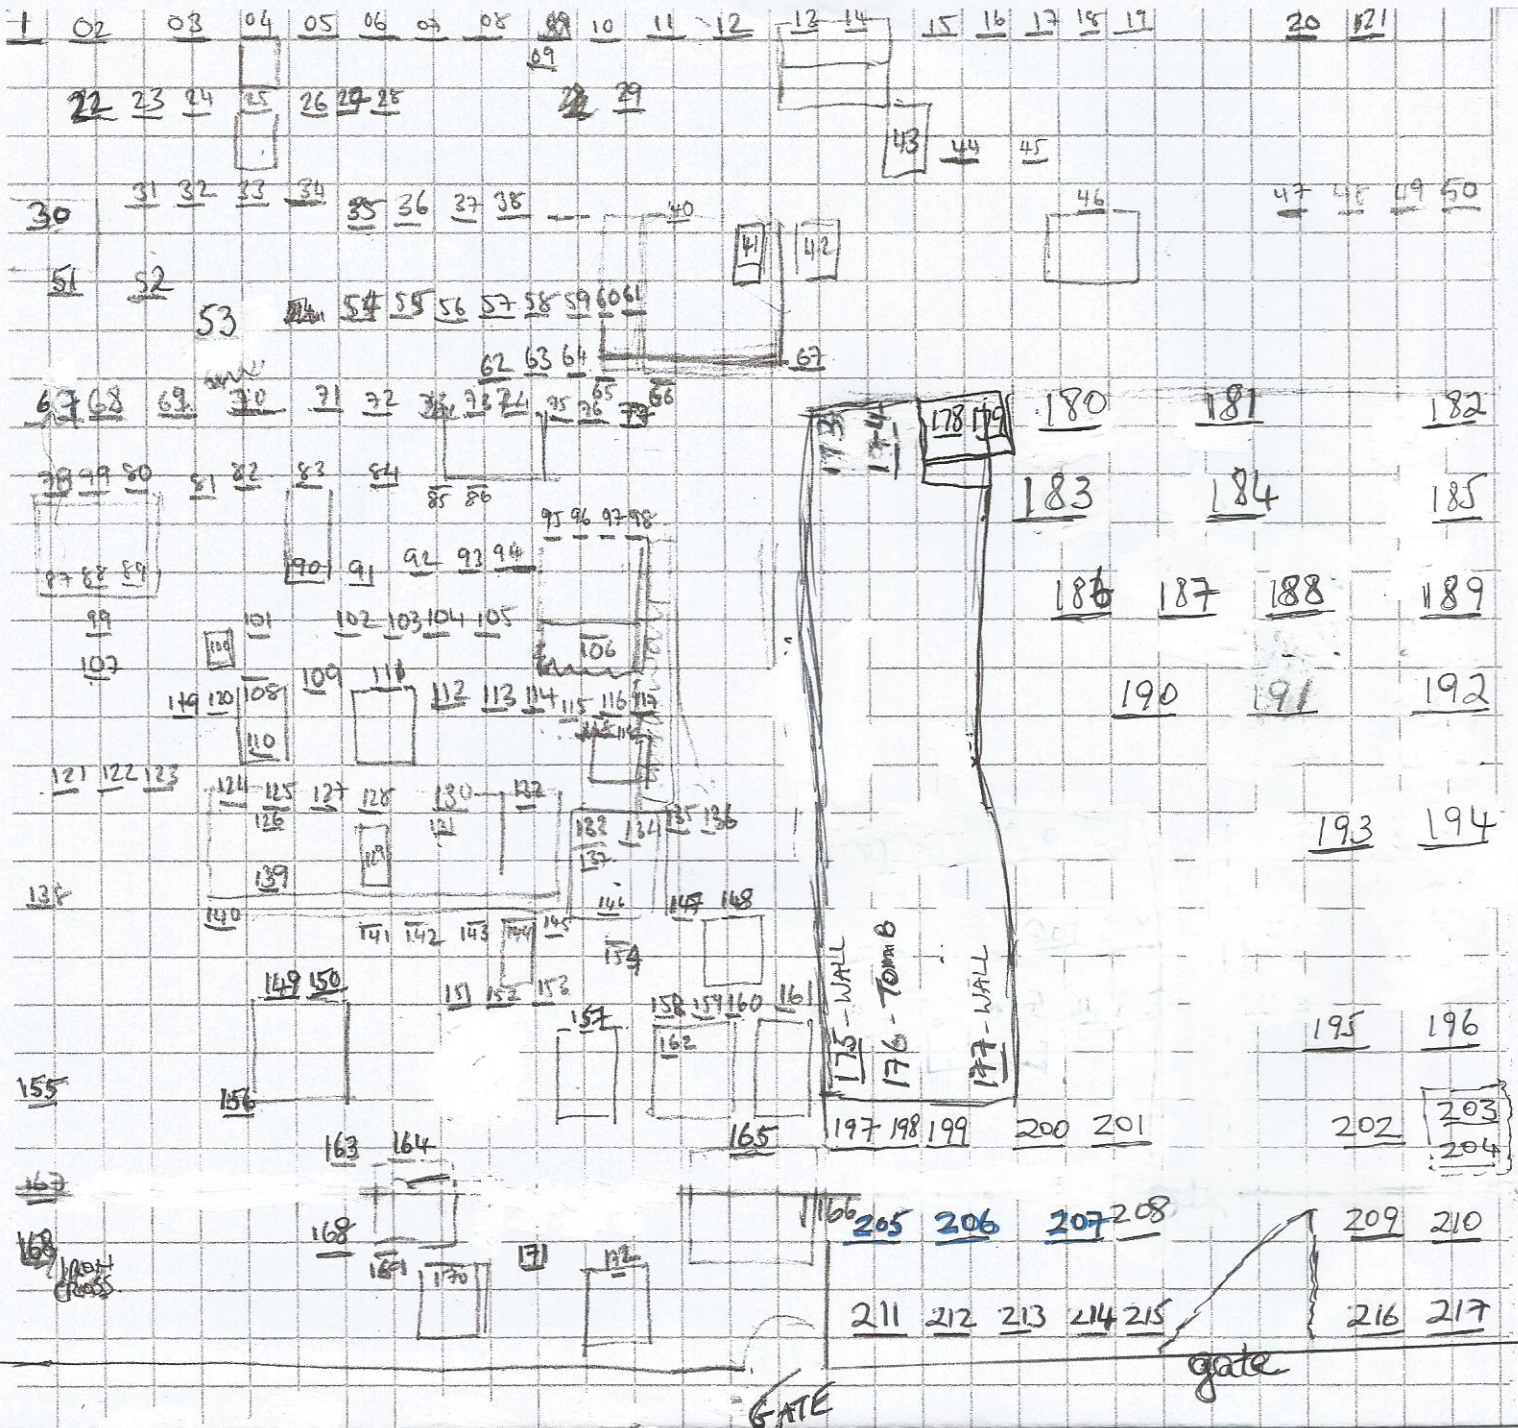 1 02 03 04 05 06 07 08 10 11 12 13 14 15 16 17 18 19 20 21
09
22 23 24 25 26 27 28 29
43 44 45
31 32 33 34
30 35 36 37 38 40 46 47 48 49 50
41 42
51 52
53 54 55 56 57 58 59 60 61
62 63 64 67
65 66
67 68 69 70 71 72 73 74 75 76 77
173 174 178 179 180 181 182
78 79 80 81 82 83 84
85 86
183 184 185
95 96 97 98
87 88 89 90 91 92 93 94
186 187 188 189
99 101 102 103 104 105
106
107 108 109 111
119 120 112 113 114 115 116 117
110
190 191 192
121 122 123 124 125 127 128 130 132
126 131 133 134 135 136
129 137
193 194
138 139
140 141 142 143 144 145 146 147 148
154
149 150 151 152 153
157 158 159 160 161
162
175 - WALL
176 - TOMB
177 - WALL
195 196
155 156
163 164 165
197 198 199 200 201 202 203
204
167
166 205 206 207 208 209 210
168 168 169 170 171 172
IRON
CROSS
211 212 213 214 215 216 217
gate
GATE